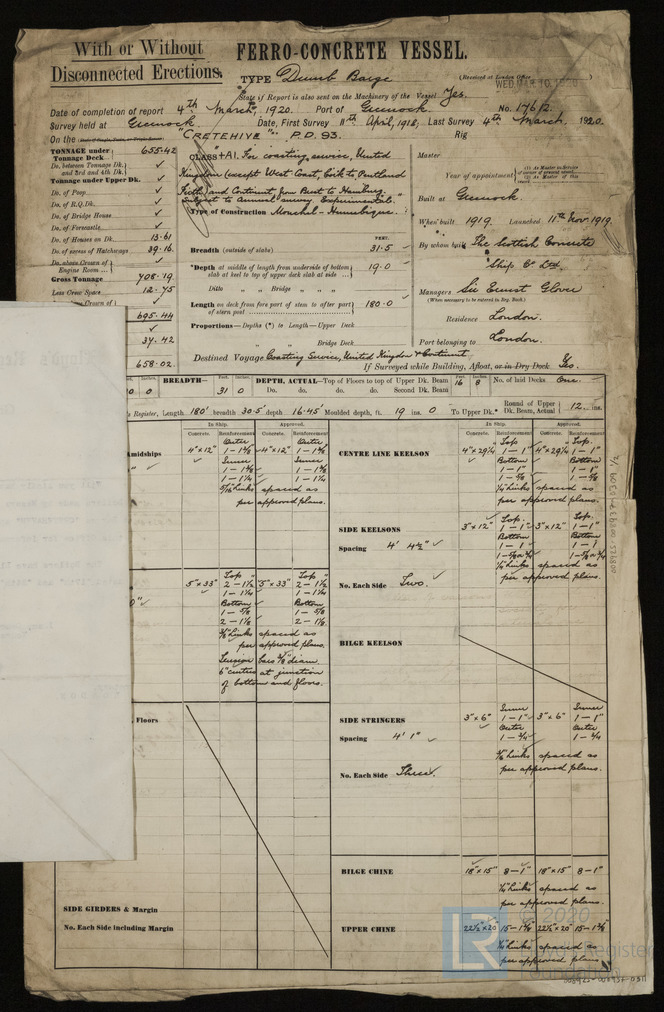 With or Without
Disconnected Erections.
FERRO-CONCRETE VESSEL.
TYPE Dumb Barge
(Received at London Office WED. MAR. 10. 1920)
State if Report is also sent on the Machinery of the Vessel Yes.
Date of completion of report 4th March, 1920. Port of Greenock. No. 17612.
Survey held at Greenock. Date, First Survey 11th April, 1918, Last Survey 4th March 1920.
On the "CRETEHIVE" P.D. 93. Rig
TONNAGE under Tonnage Deck 655.42
Do. between Tonnage Dk. and 3rd and 4th Dk.
Tonnage under Upper Dk.
Do. of Poop
Do. of R.Q.Dk.
Do. of Bridge House
Do. of Forecastle
Do. of Houses on Dk. 13.61
Do. of excess of Hatchways 39.16
Do. above Crown of Engine Room
Gross Tonnage 708.19
Less Crew Space 12.75
695.44
37.42
658.02
CLASS +A1. For coasting service, United
Kingdom (except West Coast, Cork to Pentland
Firth) and Continent from Brest to Hamburg.
Subject to annual survey. Experimental."
Type of Construction Mouchel-Hennebique.
FEET.
Breadth (outside of slabs) 31.5
Depth at middle of length from underside of bottom slab at keel to top of upper deck slab at side 19.0
Ditto " Bridge "
Length on deck from fore part of stem to after part of stern post 180.0
Proportions—Depths (*) to Length—Upper Deck
" " Bridge Deck
Master
Year of appointment
(1) As Master in Service
(2) As Master of this vessel
Built at Greenock.
When built 1919. Launched 11th Nov. 1919.
By whom built The Scottish Concrete
Ship Co Ltd.
Managers Sir Ernest Glover
(When necessary to be entered in Reg. Book)
Residence London.
Port belonging to London.
Destined Voyage Coasting Service, United Kingdom & Continent.
If Surveyed while Building, Afloat, or in Dry Dock Yes.
BREADTH— 31 0 DEPTH, ACTUAL—Top of Floors to top of Upper Dk. Beam 16 8 No. of laid Decks One.
Do. do. do. Second Dk. Beam
's Register, Length 180' breadth 30.5' depth 16.45' Moulded depth, ft. 19 ins. 0 To Upper Dk. Round of Upper Dk. Beam, Actual 12 ins.
In Ship. Approved.
Concrete. Reinforcement. Concrete. Reinforcement.
Amidships
4"x12" Outer 4"x12" Outer
Inner Inner
links spaced as
per approved plans.
5"x33" Top 5"x33" Top
2-1½ 2-1½
1-1¼ 1-1¼
Bottom Bottom
1-5/8 1-5/8
2-1⅛ 2-1⅛
links spaced as
per approved plans.
bars 3/8" diam.
6" centres at junction
of bottom and floors.
Floors
SIDE GIRDERS & Margin
No. Each Side including Margin
In Ship. Approved.
Concrete. Reinforcement. Concrete. Reinforcement.
CENTRE LINE KEELSON
4"x29¼ Top 4"x29¼ Top.
Bottom Bottom
1-1" 1-1"
links spaced as
per approved plans.
SIDE KEELSONS
3"x12" Top. 3"x12" Top.
1-1" 1-1"
Spacing 4' 4½"
Bottom Bottom
1-1 1-1
links spaced as
per approved plans.
No. Each Side Two.
BILGE KEELSON
SIDE STRINGERS
3"x6" Inner 3"x6" Inner
1-1" 1-1"
Outer Outer
1-3/4 1-3/4
Spacing 4' 1"
links spaced as
per approved plans.
No. Each Side Three.
BILGE CHINE
18"x15" 8-1" 18"x15" 8-1"
links spaced as
per approved plans.
UPPER CHINE
22½"x20" 22½"x20"
links spaced as
per approved plans
LR
© 2020
Lloyd's Register
Foundation